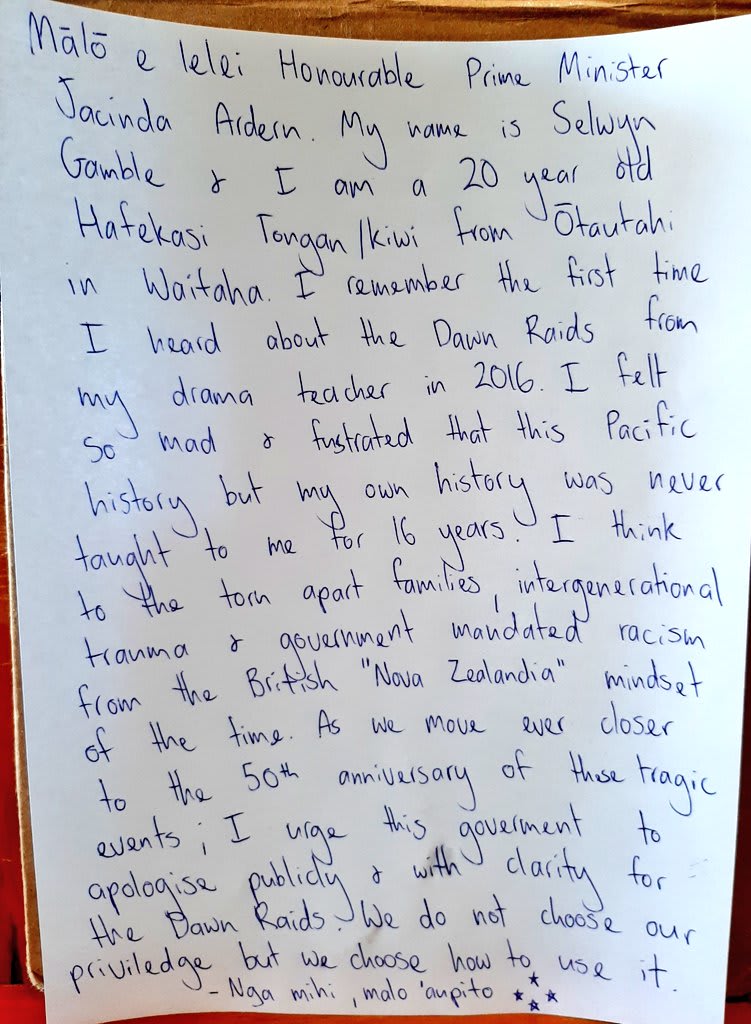 Mālō e lelei Honourable Prime Minister
Jacinda Ardern. My name is Selwyn
Gamble & I am a 20 year old
Hafekasi Tongan/kiwi from Ōtautahi
in Waitaha. I remember the first time
I heard about the Dawn Raids from
my drama teacher in 2016. I felt
so mad & fustrated that this Pacific
history but my own history was never
taught to me for 16 years. I think
to the torn apart families, intergenerational
trauma & government mandated racism
from the British "Nova Zealandia" mindset
of the time. As we move ever closer
to the 50th anniversary of these tragic
events; I urge this goverment to
apologise publicly & with clarity for
the Dawn Raids. We do not choose our
priviledge but we choose how to use it.
- Nga mihi, malo 'aupito